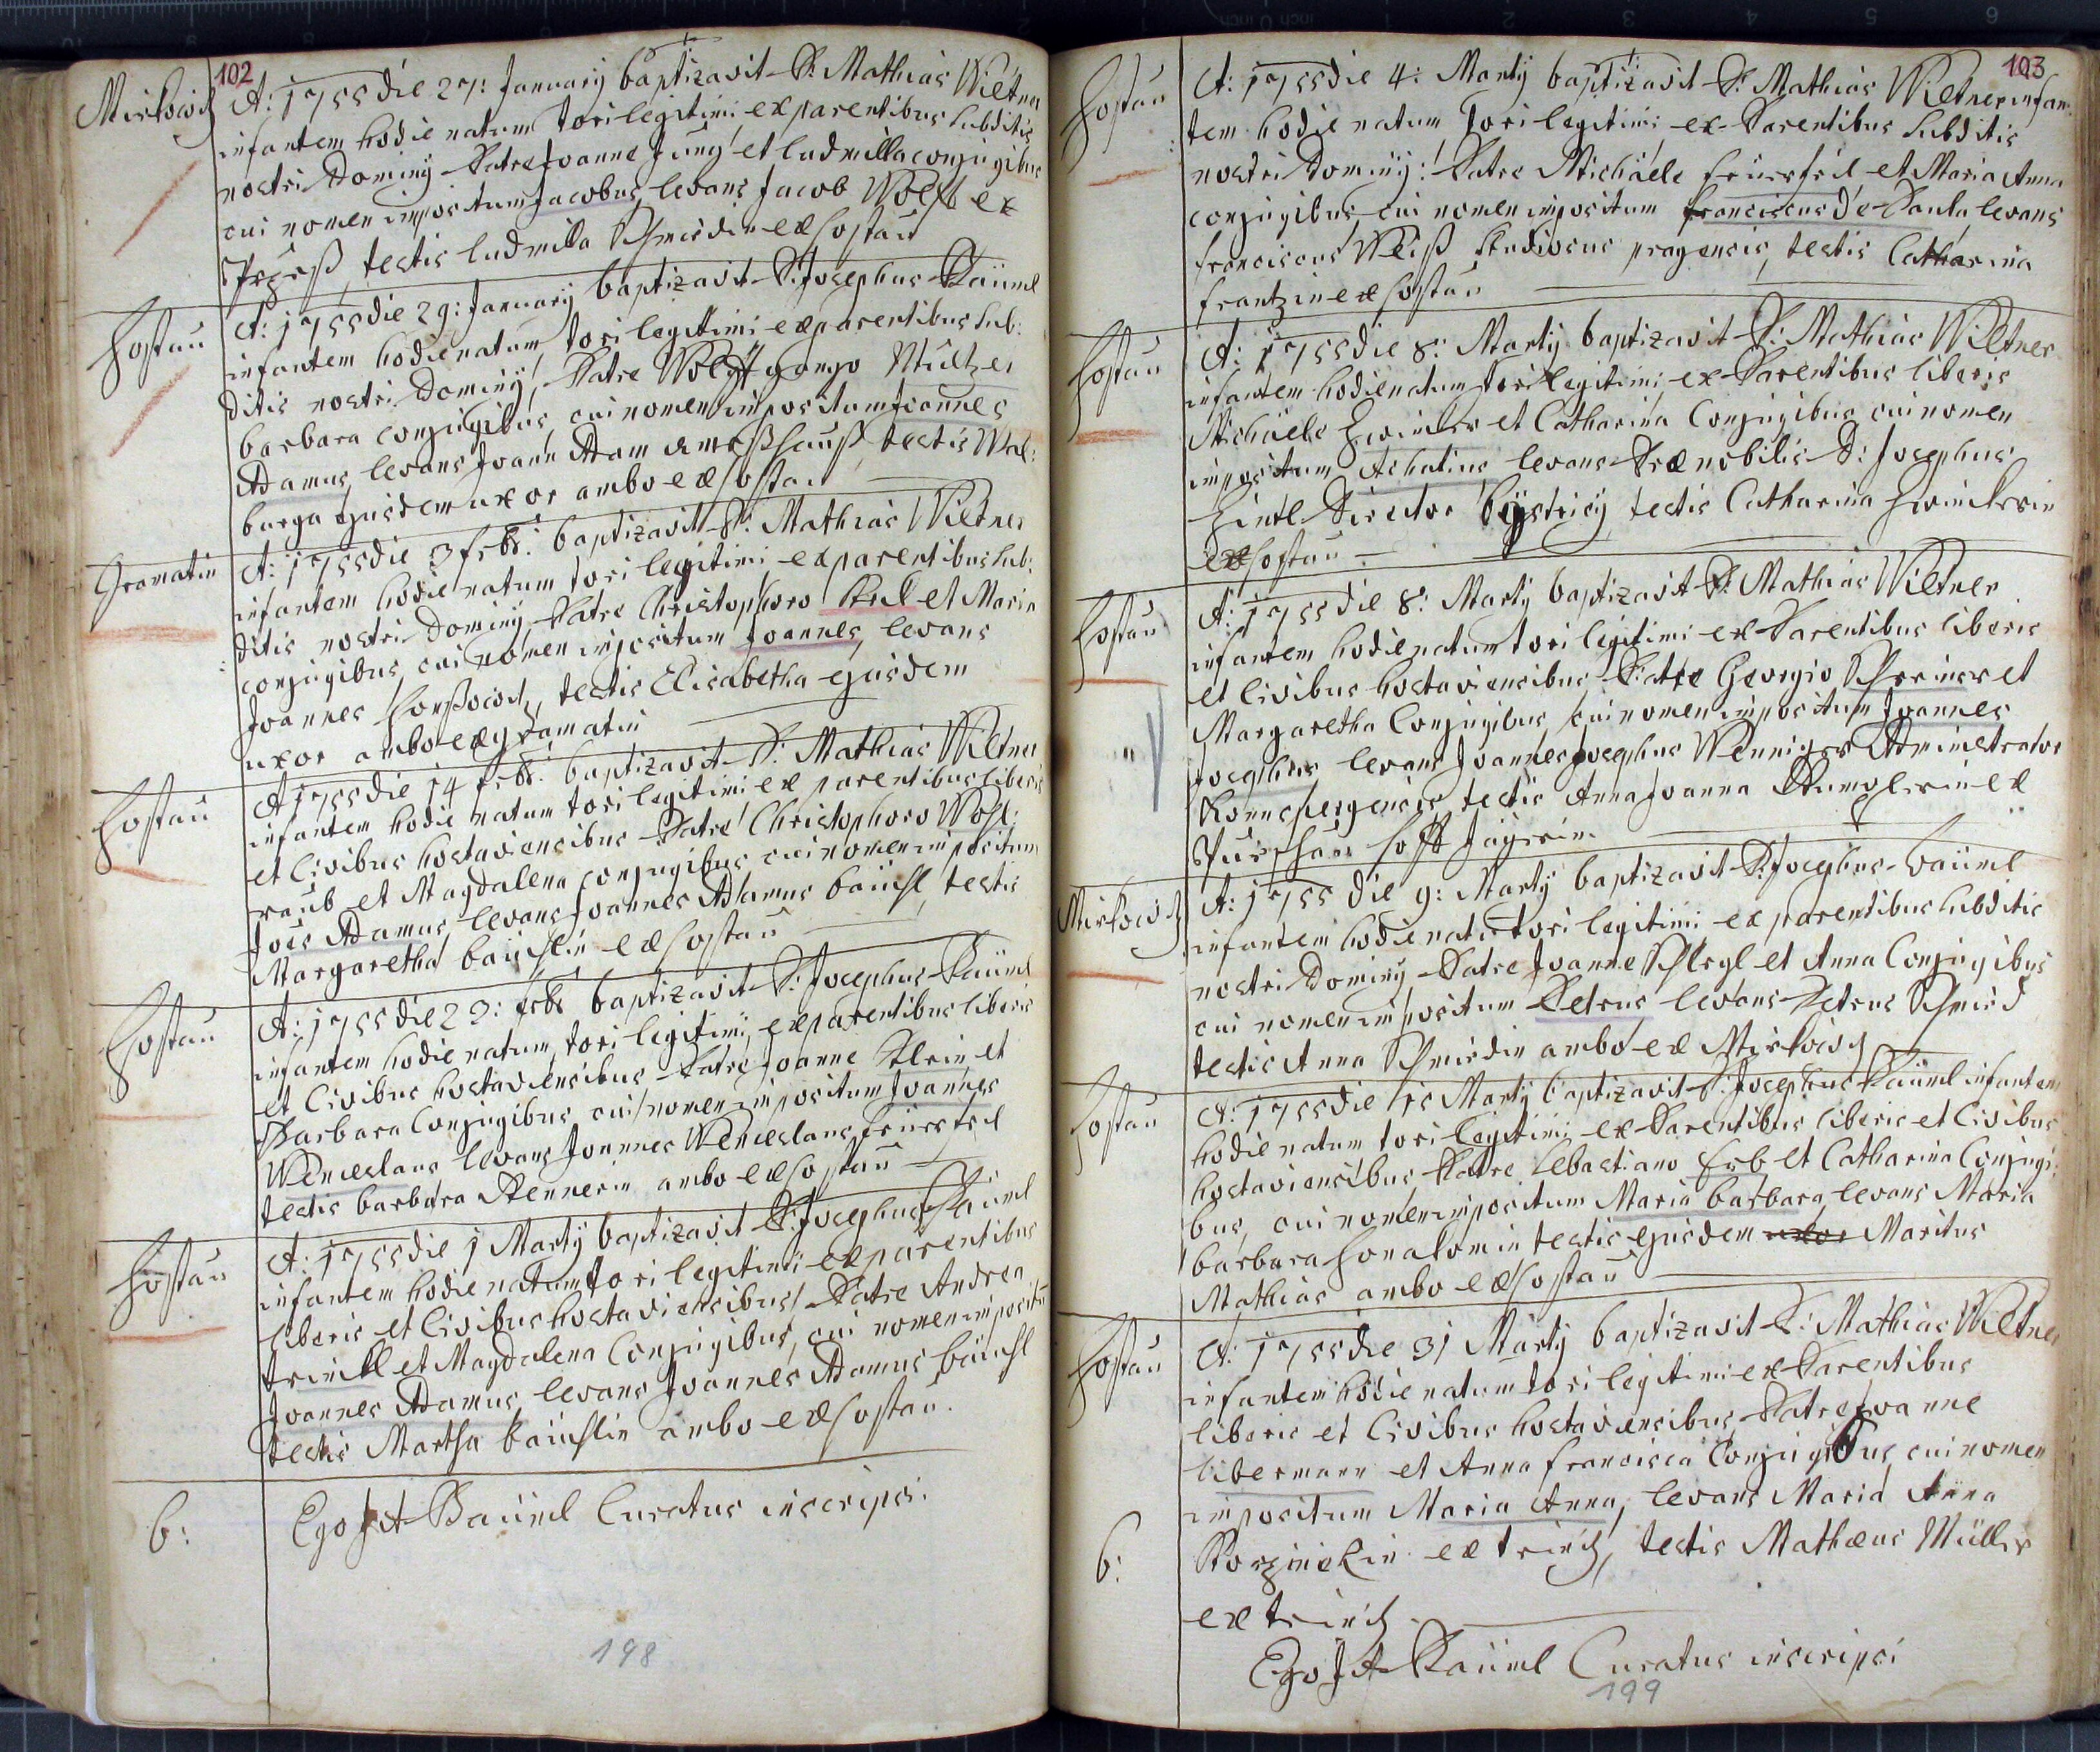 102
Mirkowitz
A: 1755 die 27: January baptizavit P: Mathias Wiltner
infantem hodie natum tori legitimi ex parentibus subditis
nostri Dominÿ Patre Joanne Jung et ludmilla conjugibus
cui nomen impositum Jacobus, levans Jacob Wolff ex
testis ludmilla Schmidin ex Hostau
Hostau
A: 1755 die 29: January baptizavit P: Josephus Bäüml
infantem hodie natum, tori legitimi ex parentibus sub:
ditis nostri Dominÿ, Patre Wolffgango Multzer
barbara conjugibus, cui nomen impositum Joannes
Adamus, levans Joann Adam testis Wal:
burga ejusdem uxor ambo ex Hostau
Gramatin
A: 1755 die 3 febr: baptizavit P: Mathias Wiltner
infantem hodie natum tori legitimi ex parentibus sub:
ditis nostri Dominÿ Patre Christophoro et Maria
conjugibus, cui nomen impositum Joannes, levans
Joannes testis Elisabetha ejusdem
uxor ambo ex gramatin
Hostau
A 1755 die 14 febr: baptizavit P: Mathias Wiltner
infantem hodie natum tori legitimi ex parentibus liberis
et Civibus hostaviensibus Patre Christophoro Wohl:
raub et Magdalena conjugibus cui nomen impositum
Joes Adamus levans Joannes Adamus bäuchl, testis
Margaretha bäuchlin ex Hostau
Hostau
A: 1755 die 23: febr baptizavit P: Josephus Bäüml
infantem hodie natum, tori legitimi, ex parentibus liberis
et Civibus hostaviensibus Patre Joanne Klein et
Barbara Conjugibus, cui nomen impositum Joannes
Wenceslaus levans Joannes Wenceslaus feierfeil
testis barbara Rennerin ambo ex Hostau
Hostau
A: 1755 die 1 Martÿ baptizavit P: Josephus Bäüml
infantem hodie natum tori legitimi ex parentibus
liberis et Civibus hostaviensibus, Patre Andrea
et Magdalena Conjugibus, cui nomen impositu
Joannes Adamus, levans Joannes Adamus bäuchl
testis Martha bäuchlin ambo ex Hostau.
6:
Ego JA Bäüml Curatus inscripsi.
198
103
Hostau
A: 1755 die 4: Martÿ baptizavit P: Mathias Wiltner infan:
tem hodie natum Tori legitimi, ex Parentibus subditis
nostri Dominÿ: Patre Michäele feierfeil et Maria Anna
conjugibus, cui nomen impositum franciscus de Paula, levans
franciscus Weiß studiosus pragensis, testis Catharina
frantzin ex Hostau
Hostau
A: 1755 die 8: Martÿ baptizavit P: Mathias Wiltner
infantem hodie natum tori legitimi, ex Parentibus liberis
Michäele Zwincker et Catharina Conjugibus, cui nomen
impositum Achatius levans Prænobilis D: Josephus
Director testis Catharina Zwinckerin
ex Hostau
Hostau
A: 1755 die 8: Martÿ baptizavit P: Mathias Wiltner
infantem hodie natum tori legitimi ex Parentibus liberis
et Civibus hostaviensibus, Patre Georgio Schreiner et
Margaretha Conjugibus, cui nomen impositum Joannes
Josephus levans Joannes Josephus Wenniger Administrator
Ronspergensis, testis Anna Joanna ex
Hoff Jägerin.
Mirkowitz
A: 1755 die 9: Martÿ baptizavit P: Josephus bäüml
infantem hodie natu tori legitimi ex parentibus subditis
nostri Dominÿ Patre Joanne Schlegl et Anna Conjugibus
cui nomen impositum Petrus levans Petrus Schmied
testis Anna Schmidin ambo ex Mirkowitz
Hostau
A: 1755 die 15 Martÿ baptizavit P: Josephus Bäüml infantem
hodie natum tori legitimi ex Parentibus liberis et Civibus
hostaviensibus Patre Sebastiano Erb et Catharina Conjugi:
bus, cui nomen impositum Maria barbara, levans Maria
barbara testis ejusdem uxor Maritus
Mathias ambo ex Hostau
Hostau
A: 1755 die 31 Martÿ baptizavit P: Mathias Wiltner
infantem hodie natum tori legitimi ex Parentibus
liberis et Civibus hostaviensibus, Patre Joanne
libermann et Anna francisca Conjugibus, cui nomen
impositum Maria Anna, levans Maria Anna
ex testis Mathæus Müller
ex
6:
Ego JA Bäüml Curatus inscripsi
199